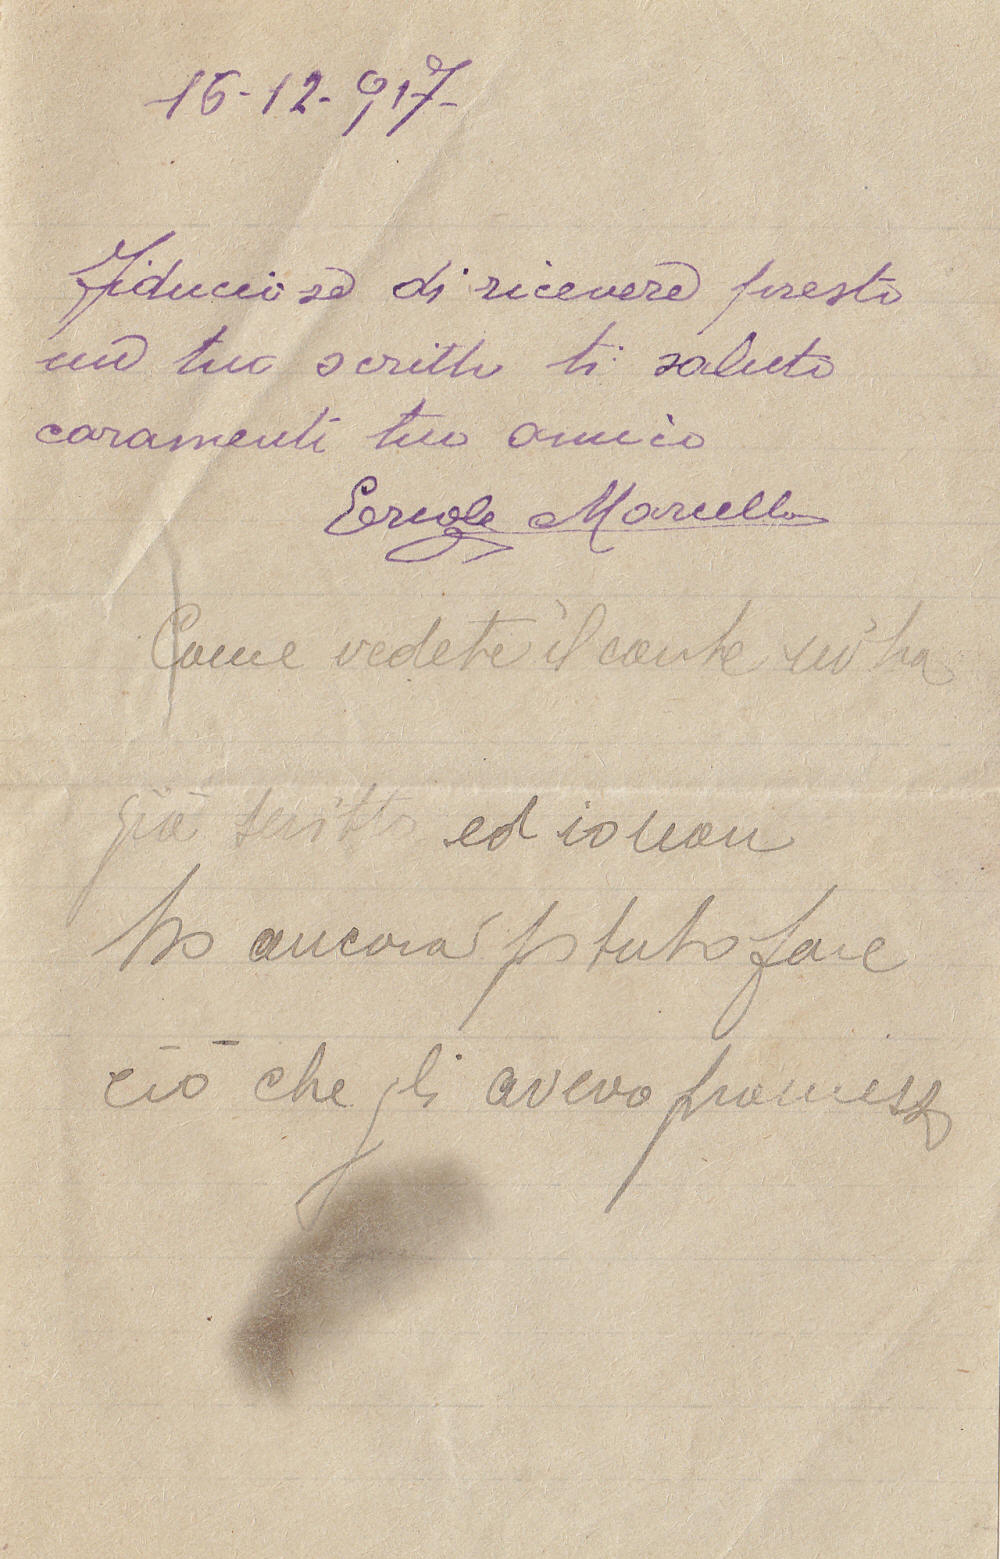 16-12-917-
Fiducioso di ricevere presto
un tuo scritto ti saluto
caramente tuo amico
Ercole Marcello
Come vedete il conte m'ha
già scritto ed io non
ho ancora potuto fare
ciò che gli avevo promesso